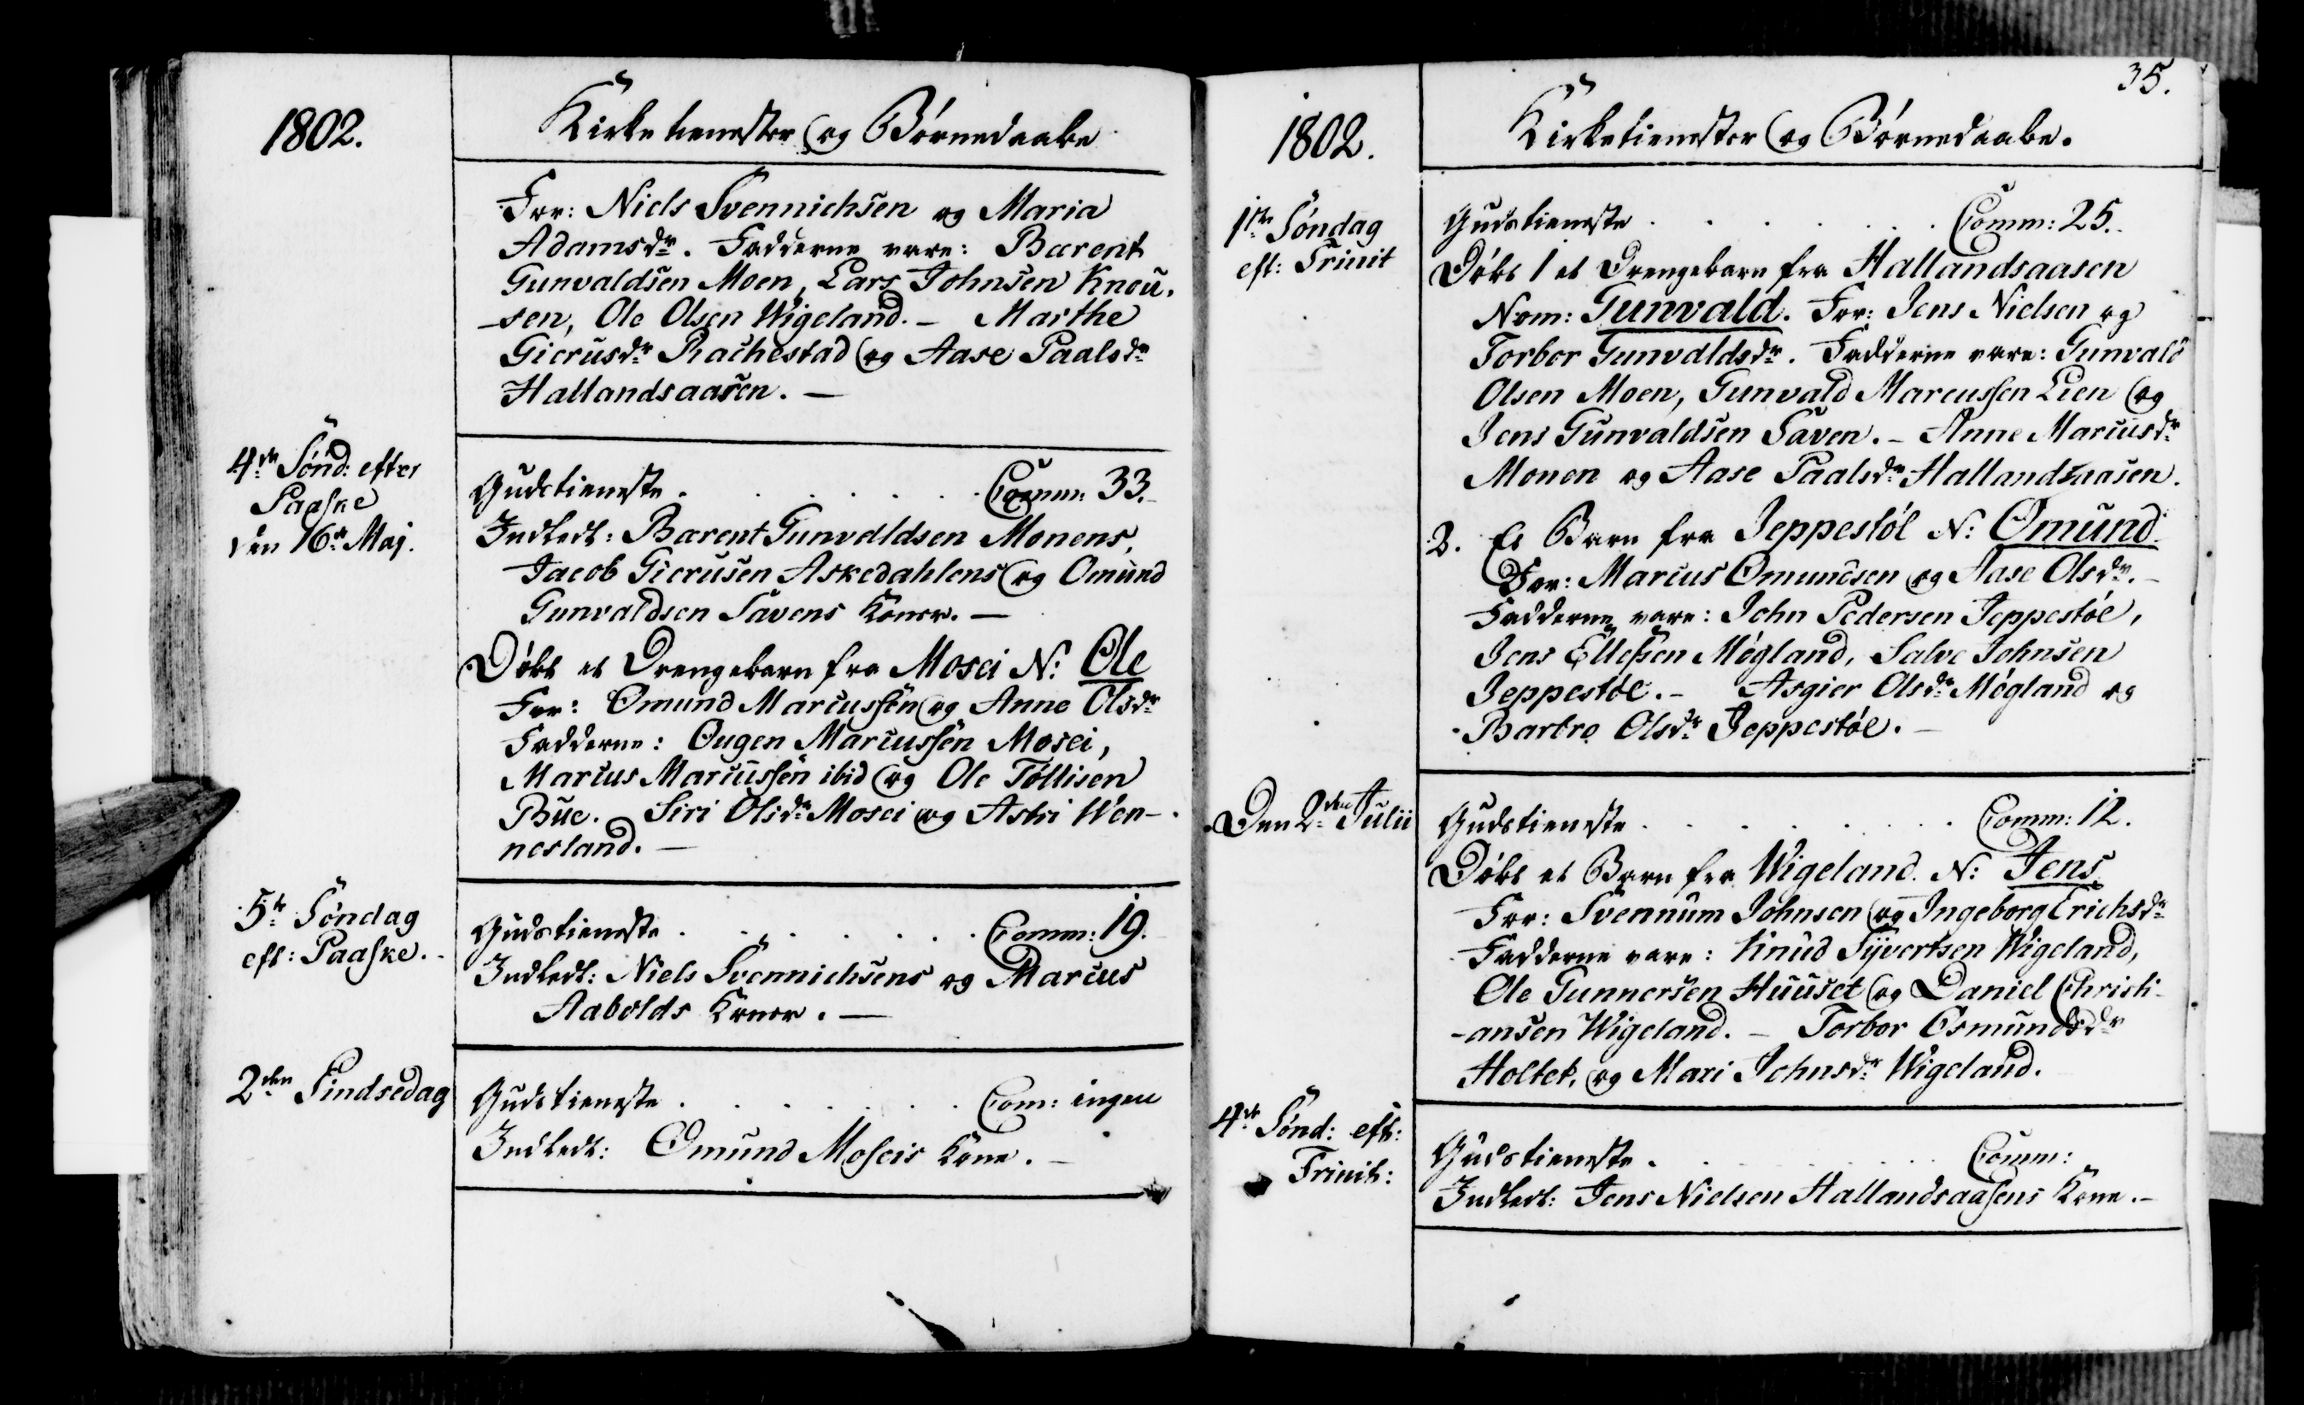 1802.
Kirketienester og Børnedaabe
For: Niels Svennichsen og Maria
Adamsdr. Fadderne vare: Barent
Gunvaldsen Moen, Lars Johnsen Knou-
-sen, Ole Olsen Wigeland. - Marthe
Gierusdr Rachestad og Aase Paalsdr
Hallandsaasen. -
4de Sønd: efter
Paaske
den 16de Maj.
Gudstieneste . . . . . . Comm: 33.
Indledt: Barent Gunvaldsen Monens,
Jacob Gierusen Askedahlens og Omund
Gunvaldsen Savens Koner. -
Døbt et Drengebarn fra Mosei N: Ole
For: Omund Marcussen og Anne Olsdr
Fadderne: Ougen Marcussen Mosei,
Marcus Marcussen ibid og Ole Tøllisen
Bue. Siri Olsdr Mosei og Astri Wen-
nesland. -
5te Søndag
eft: Paaske.
Gudstieneste . . . . . . Comm: 19.
Indledt: Niels Svennichsens og Marcus
Aabolds Koner. -
2den Pindsedag
Gudstieneste . . . . . . Com: ingen
Indledt: Omund Moseis Kone. -
35.
1802.
Kirketienester og Børnedaabe.
1ste Søndag
eft: Trinit
Gudstieneste . . . . . . Comm: 25.
Døbt 1 et Drengebarn fra Hallandsaasen
Nom: Gunvald. For: Jens Nielsen og
Torbor Gunvaldsdr. Fadderne vare: Gunvald
Olsen Moen, Gunvald Marcussen Lien og
Jens Gunvaldsen Saven. - Anne Marcusdr
Monen og Aase Paalsdr Hallandsaasen.
2. Et Barn fra Jeppestøl N: Omund.
For: Marcus Omundsen og Aase Olsdr. -
Fadderne vare: John Pedersen Jeppestøl,
Jens Ellefsen Møgland, Salve Johnsen
Jeppestøl. - Asgier Olsdr Møgland og
Barbro Olsdr Jeppestøl. -
Den 2den Julii
Gudstieneste . . . . . . Comm: 12.
Døbt et Barn fra Wigeland. N: Jens
For: Svennum Johnsen og Ingeborg Erichsdr
Fadderne vare: Knud Syvertsen Wigeland,
Ole Gunnersen Huuset og Daniel Christi-
-ansen Wigeland. - Torbor Osmundsdr
Holtet, og Mari Johnsdr Wigeland.
4de Sønd: eft:
Trinit:
Gudstieneste . . . . . . Comm:
Indledt: Jens Nielsen Hallandsaasens Kone. -